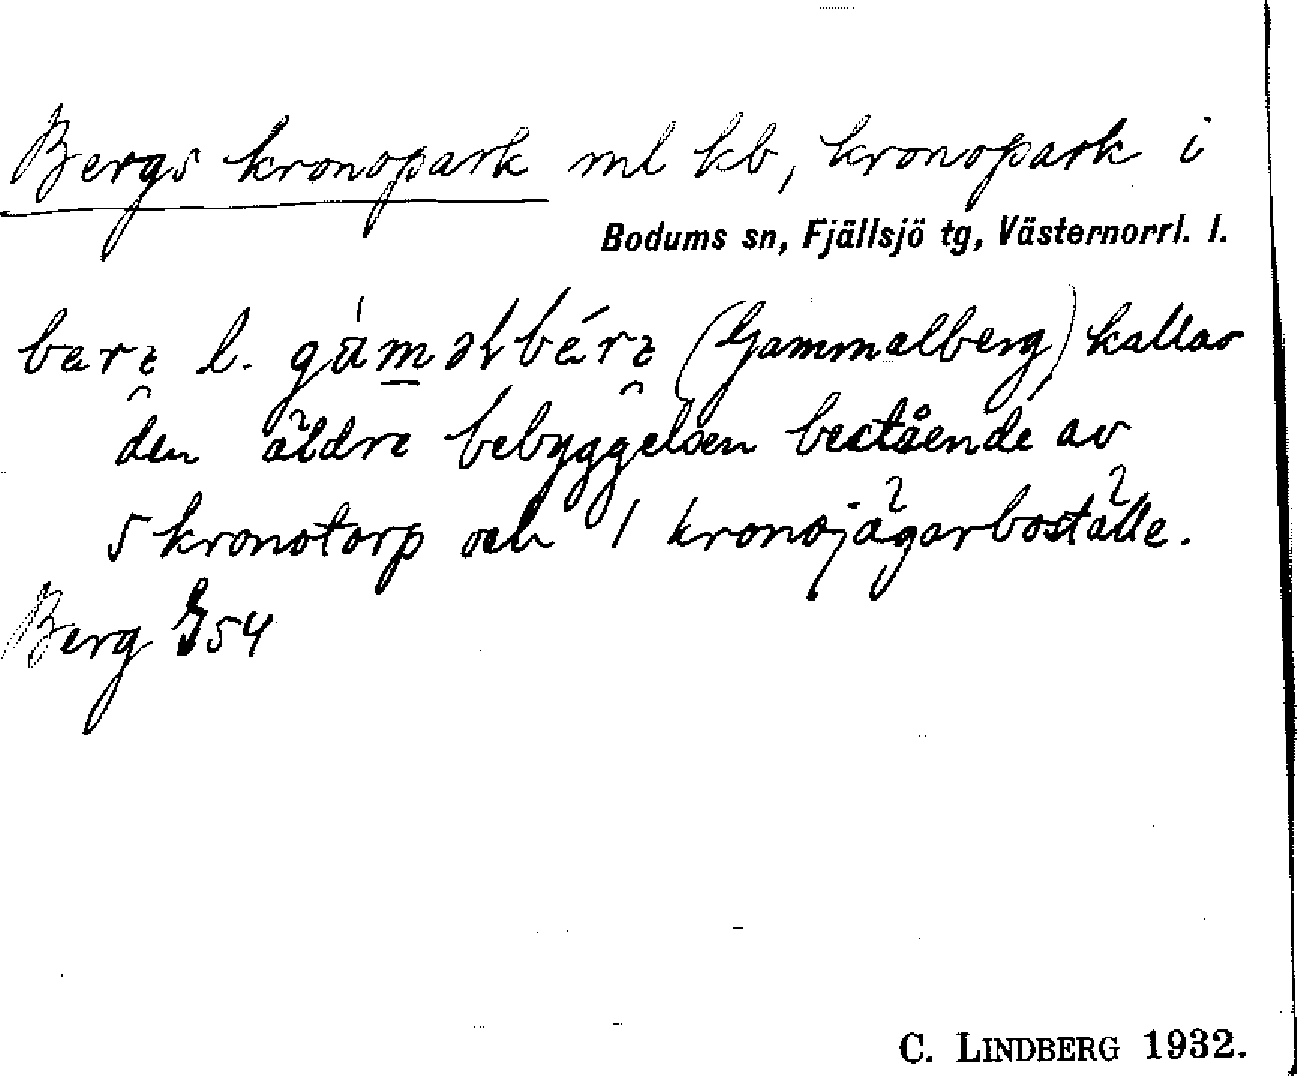 Bergs kronopark ml kb, kronopark i
Bodums sn, Fjällsjö tg, Västernorrl. l.
l. (Gammalberg) kallas
den äldre bebyggelsen bestående av
5 kronotorp och 1 kronojägarboställe.
Berg 54
C. LINDBERG 1932.